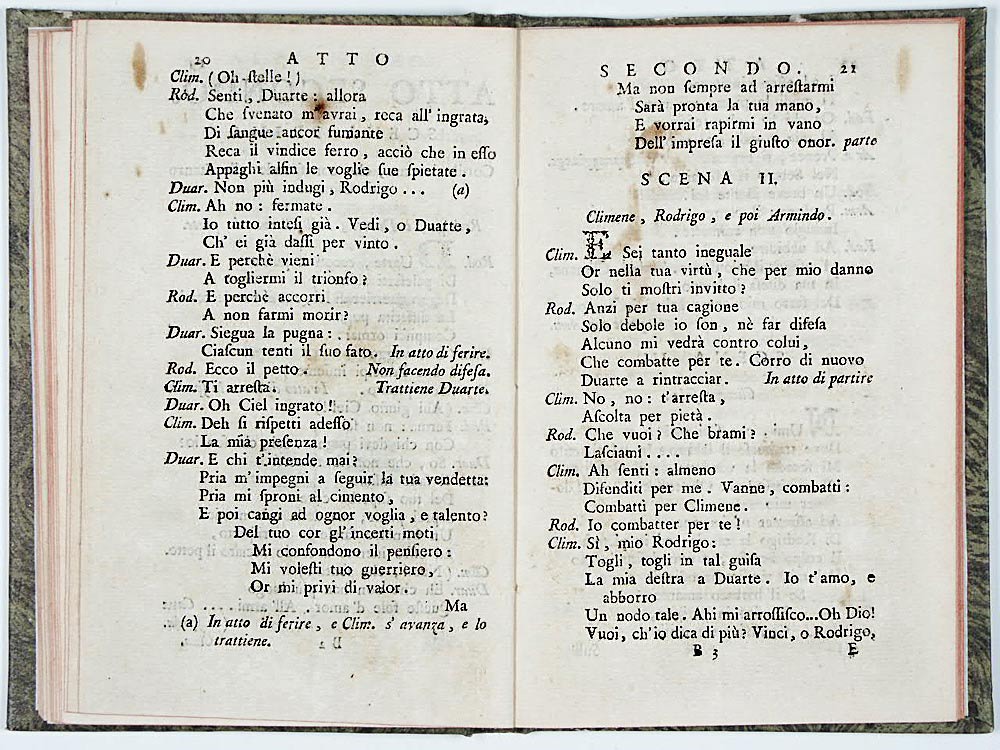 20 ATTO
Clim. (Oh ſtelle!)
Rod. Senti, Duarte: allora
Che ſvenato m'avrai, reca all' ingrata,
Di ſangue ancor fumante
Reca il vindice ferro, acciò che in eſſo
Appaghi alfin le voglie ſue ſpietate.
Duar. Non più indugi, Rodrigo... (a)
Clim. Ah no: fermate.
Io tutto inteſi già. Vedi, o Duarte,
Ch' ei già daſſi per vinto.
Duar. E perchè vieni
A togliermi il trionfo?
Rod. E perchè accorri
A non farmi morir?
Duar. Siegua la pugna:
Ciaſcun tenti il ſuo fato. In atto di ferire.
Rod. Ecco il petto. Non facendo difeſa.
Clim. Ti arreſta. Trattiene Duarte.
Duar. Oh Ciel ingrato!
Clim. Deh ſi riſpetti adeſſo
La mia preſenza!
Duar. E chi t'intende mai?
Pria m'impegni a ſeguir la tua vendetta:
Pria mi ſproni al cimento,
E poi cangi ad ognor voglia, e talento?
Del tuo cor gl'incerti moti
Mi confondono il penſiero:
Mi voleſti tuo guerriero,
Or mi privi di valor.
Ma
(a) In atto di ferire, e Clim. s' avanza, e lo
trattiene.
SECONDO. 21
Ma non ſempre ad arreſtarmi
Sarà pronta la tua mano,
E vorrai rapirmi in vano
Dell' impreſa il giuſto onor. parte
SCENA II.
Climene, Rodrigo, e poi Armindo.
Clim. E Sei tanto ineguale
Or nella tua virtù, che per mio danno
Solo ti moſtri invitto?
Rod. Anzi per tua cagione
Solo debole io ſon, nè far difeſa
Alcuno mi vedrà contro colui,
Che combatte per te. Corro di nuovo
Duarte a rintracciar. In atto di partire
Clim. No, no: t'arreſta,
Aſcolta per pietà.
Rod. Che vuoi? Che brami?
Laſciami....
Clim. Ah ſenti: almeno
Difenditi per me. Vanne, combatti:
Combatti per Climene.
Rod. Io combatter per te!
Clim. Sì, mio Rodrigo:
Togli, togli in tal guiſa
La mia deſtra a Duarte. Io t'amo, e
abborro
Un nodo tale. Ahi mi arroſſiſco...Oh Dio!
Vuoi, ch'io dica di più? Vinci, o Rodrigo,
B 3 E